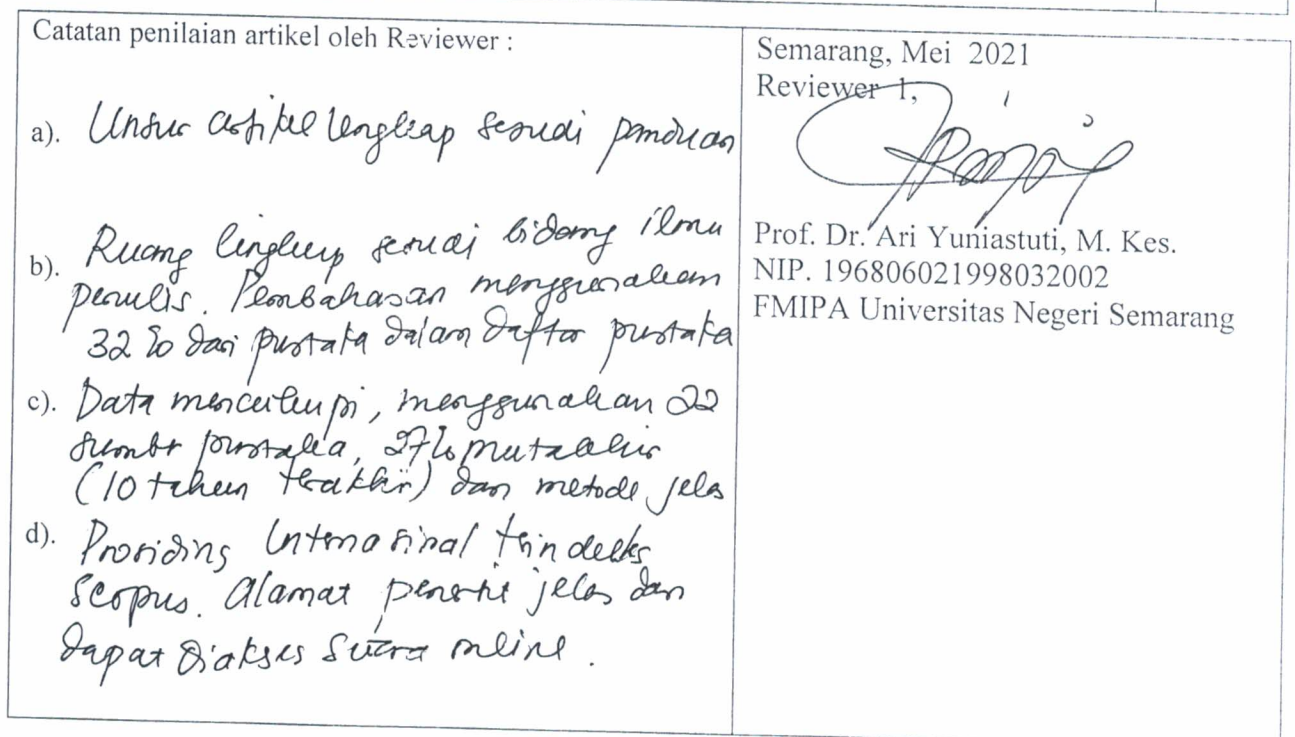 Catatan penilaian artikel oleh Reviewer :
a). Unsur artikel lengkap sesuai panduan
b). Ruang lingkup sesuai bidang ilmu
penulis. Pembahasan menggunakan
32 % dari pustaka dalam daftar pustaka
c). Data mencukupi, menggunakan 22
sumber pustaka, 27% mutakhir
(10 tahun terakhir) dan metode jelas
d). Prosiding Internasional terindeks
Scopus. Alamat penerbit jelas dan
dapat diakses secara online.
Semarang, Mei 2021
Reviewer 1,
Prof. Dr. Ari Yuniastuti, M. Kes.
NIP. 196806021998032002
FMIPA Universitas Negeri Semarang